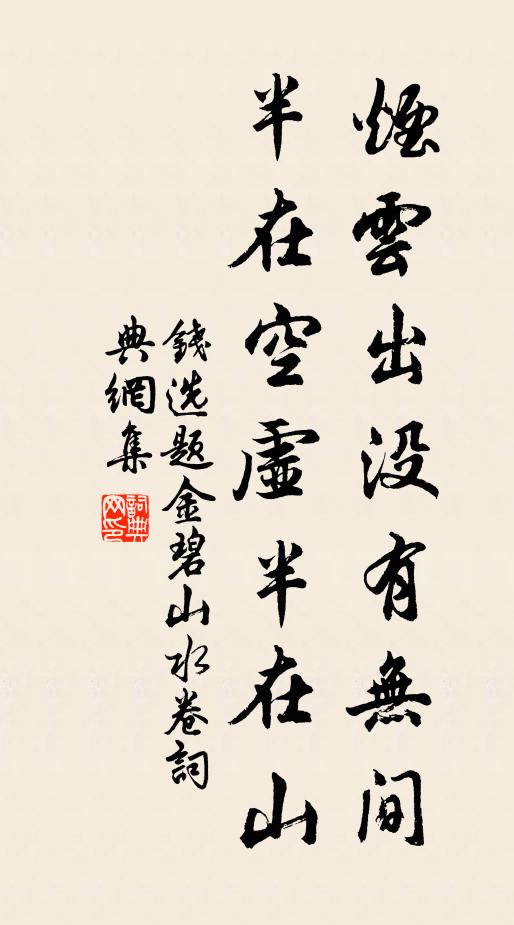 煙雲出没有無間
半在空虛半在山
錢选题金碧山水卷詞
典網集
詞典網印